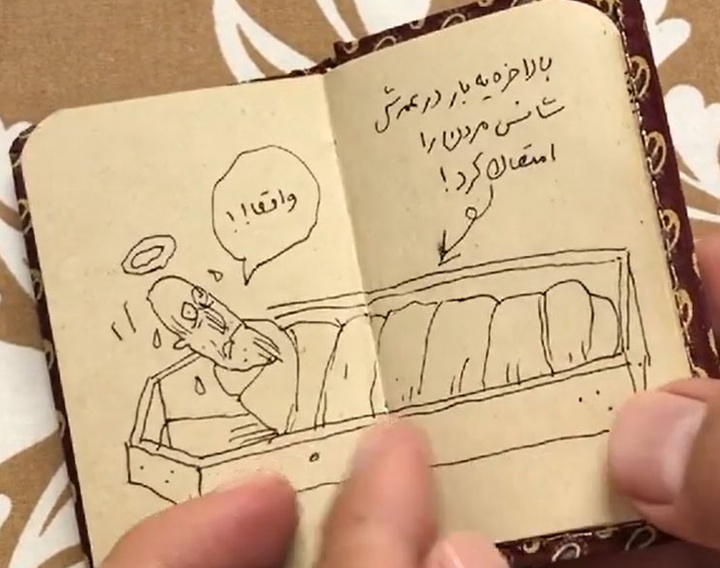 بالاخره یه بار در عمرش
شانس مردن را
امتحان کرد!
واقعا!!